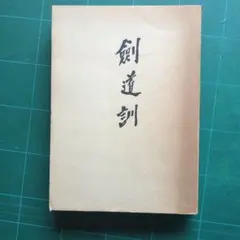 劍道訓